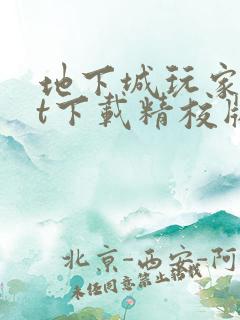 地下城玩家
t下载精校版
北京-西安-阿
未经同意禁止转载